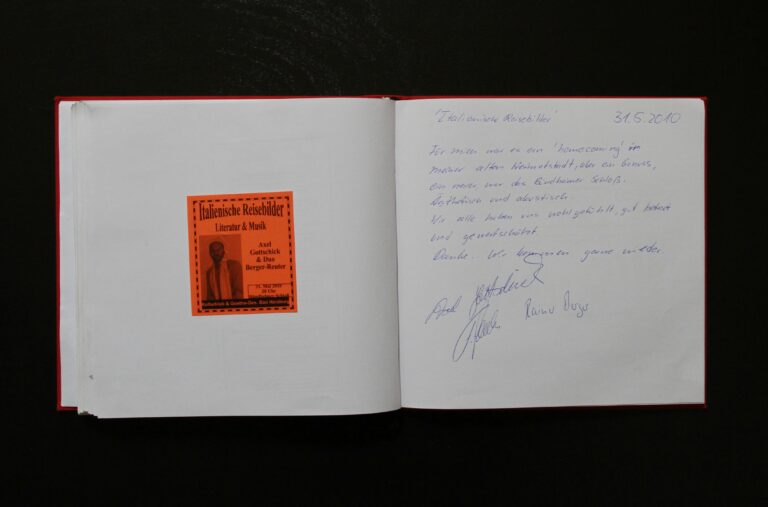 Italienische Reisebilder
Literatur & Musik
Axel
Gottschick
& Duo
Berger-Reuter
31. Mai 2010
20 Uhr
Kulturklub & Goethe-Ges. Bad Harzburg
'Italienische Reisebilder' 31.5.2010
Für mich war es ein 'homecoming' in
meiner alten Heimatstadt, aber ein
ein war das Bündheimer Schloß.
Ästhetisch und akustisch.
Wir alle haben uns wohlgefühlt, gut betreut
und gewertschätzt.
Danke. Wir kommen gerne wieder.
Axel Gottschick
Rainer Berger